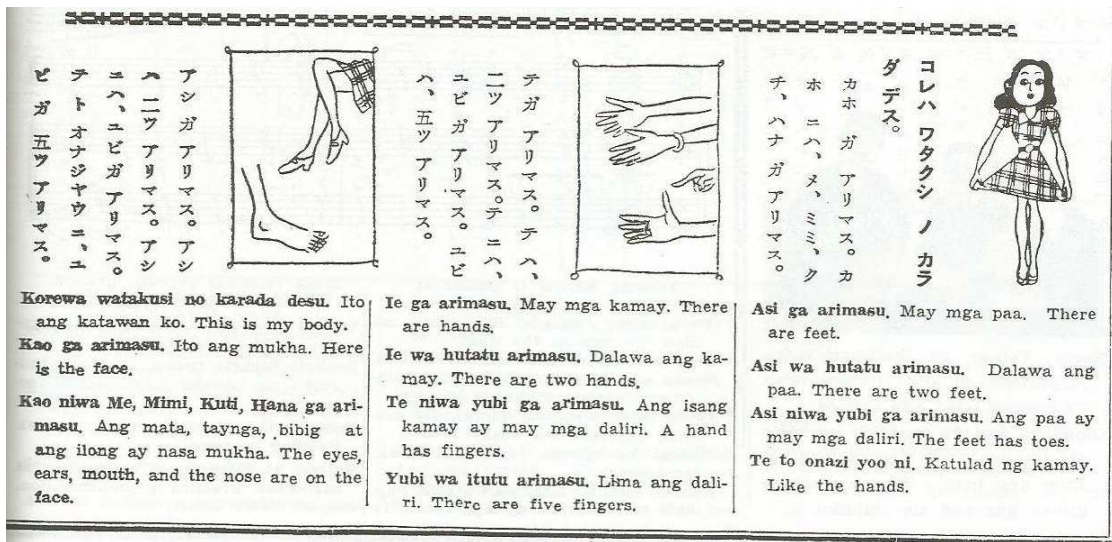 コレハ ワタクシ ノ カラ
ダ デス。
カホ ガ アリマス。カ
ホ ニハ、メ、ミミ、ク
チ、ハナ ガ アリマス。
テガ アリマス。テ ハ、
二ツ アリマス。テ ニハ、
ユビ ガ アリマス。ユビ
ハ、五ツ アリマス。
アシガ アリマス。アシ
ハ 二ツ アリマス。アシ
ニハ、ユビガ アリマス。
テ ト オナジヤウ ニ、ユ
ビ ガ 五ツ アリマス。
Korewa watakusi no karada desu. Ito
ang katawan ko. This is my body.
Kao ga arimasu. Ito ang mukha. Here
is the face.
Kao niwa Me, Mimi, Kuti, Hana ga ari-
masu. Ang mata, taynga, bibig at
ang ilong ay nasa mukha. The eyes,
ears, mouth, and the nose are on the
face.
Ie ga arimasu. May mga kamay. There
are hands.
Ie wa hutatu arimasu. Dalawa ang ka-
may. There are two hands.
Te niwa yubi ga arimasu. Ang isang
kamay ay may mga daliri. A hand
has fingers.
Yubi wa itutu arimasu. Lima ang dali-
ri. There are five fingers.
Asi ga arimasu. May mga paa. There
are feet.
Asi wa hutatu arimasu. Dalawa ang
paa. There are two feet.
Asi niwa yubi ga arimasu. Ang paa ay
may mga daliri. The feet has toes.
Te to onazi yoo ni. Katulad ng kamay.
Like the hands.